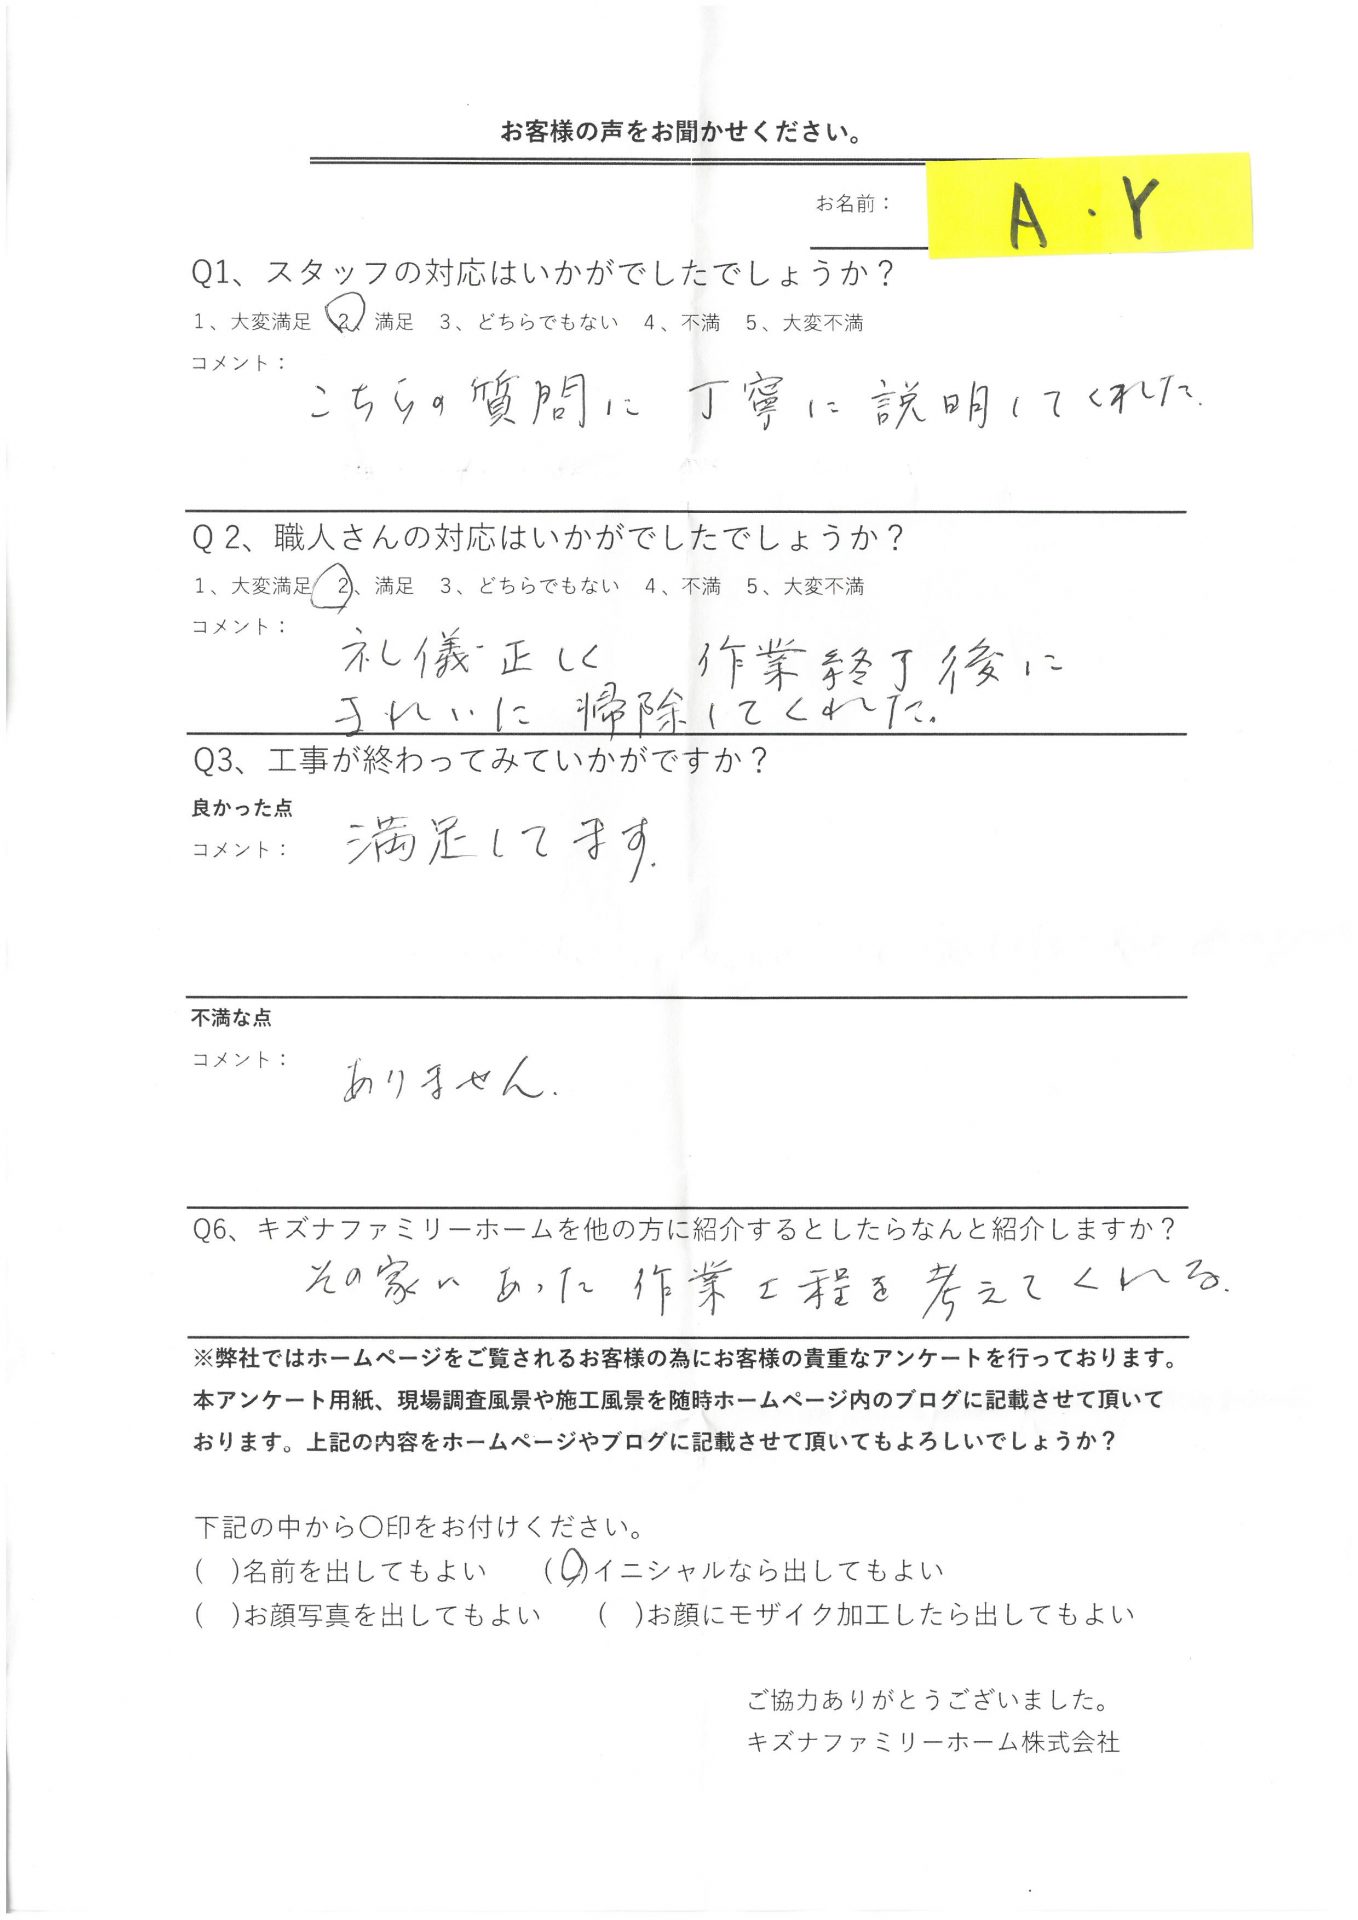 お客様の声をお聞かせください。
お名前：
A・Y
Q1、スタッフの対応はいかがでしたでしょうか？
1、大変満足　2、満足　3、どちらでもない　4、不満　5、大変不満
コメント：
こちらの質問に 丁寧に説明してくれた.
Q 2、職人さんの対応はいかがでしたでしょうか？
1、大変満足　2、満足　3、どちらでもない　4、不満　5、大変不満
コメント：
礼儀正しく　作業終了後に
きれいに掃除してくれた。
Q3、工事が終わってみていかがですか？
良かった点
コメント：
満足してます.
不満な点
コメント：
ありません.
Q6、キズナファミリーホームを他の方に紹介するとしたらなんと紹介しますか？
その家にあった作業工程を考えてくれる.
※弊社ではホームページをご覧されるお客様の為にお客様の貴重なアンケートを行っております。
本アンケート用紙、現場調査風景や施工風景を随時ホームページ内のブログに記載させて頂いて
おります。上記の内容をホームページやブログに記載させて頂いてもよろしいでしょうか？
下記の中から〇印をお付けください。
(　)名前を出してもよい　(〇)イニシャルなら出してもよい
(　)お顔写真を出してもよい　(　)お顔にモザイク加工したら出してもよい
ご協力ありがとうございました。
キズナファミリーホーム株式会社